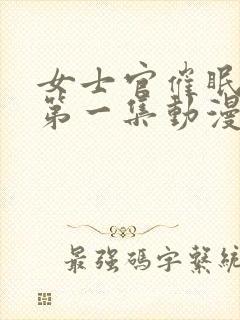 女士官催眠
第一集動漫
最強碼字繫統